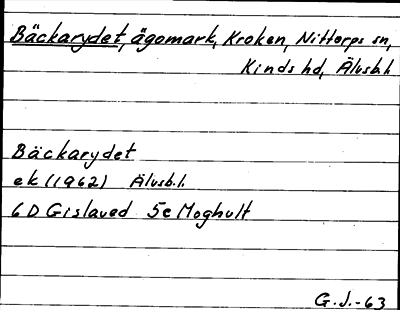 Bäckarydet, ägomark, Kroken, Nittorps sn,
Kinds hd, Älvsb.l
Bäckarydet
ek (1962) Älvsb.l.
6D Gislaved 5e Moghult
G.J.-63